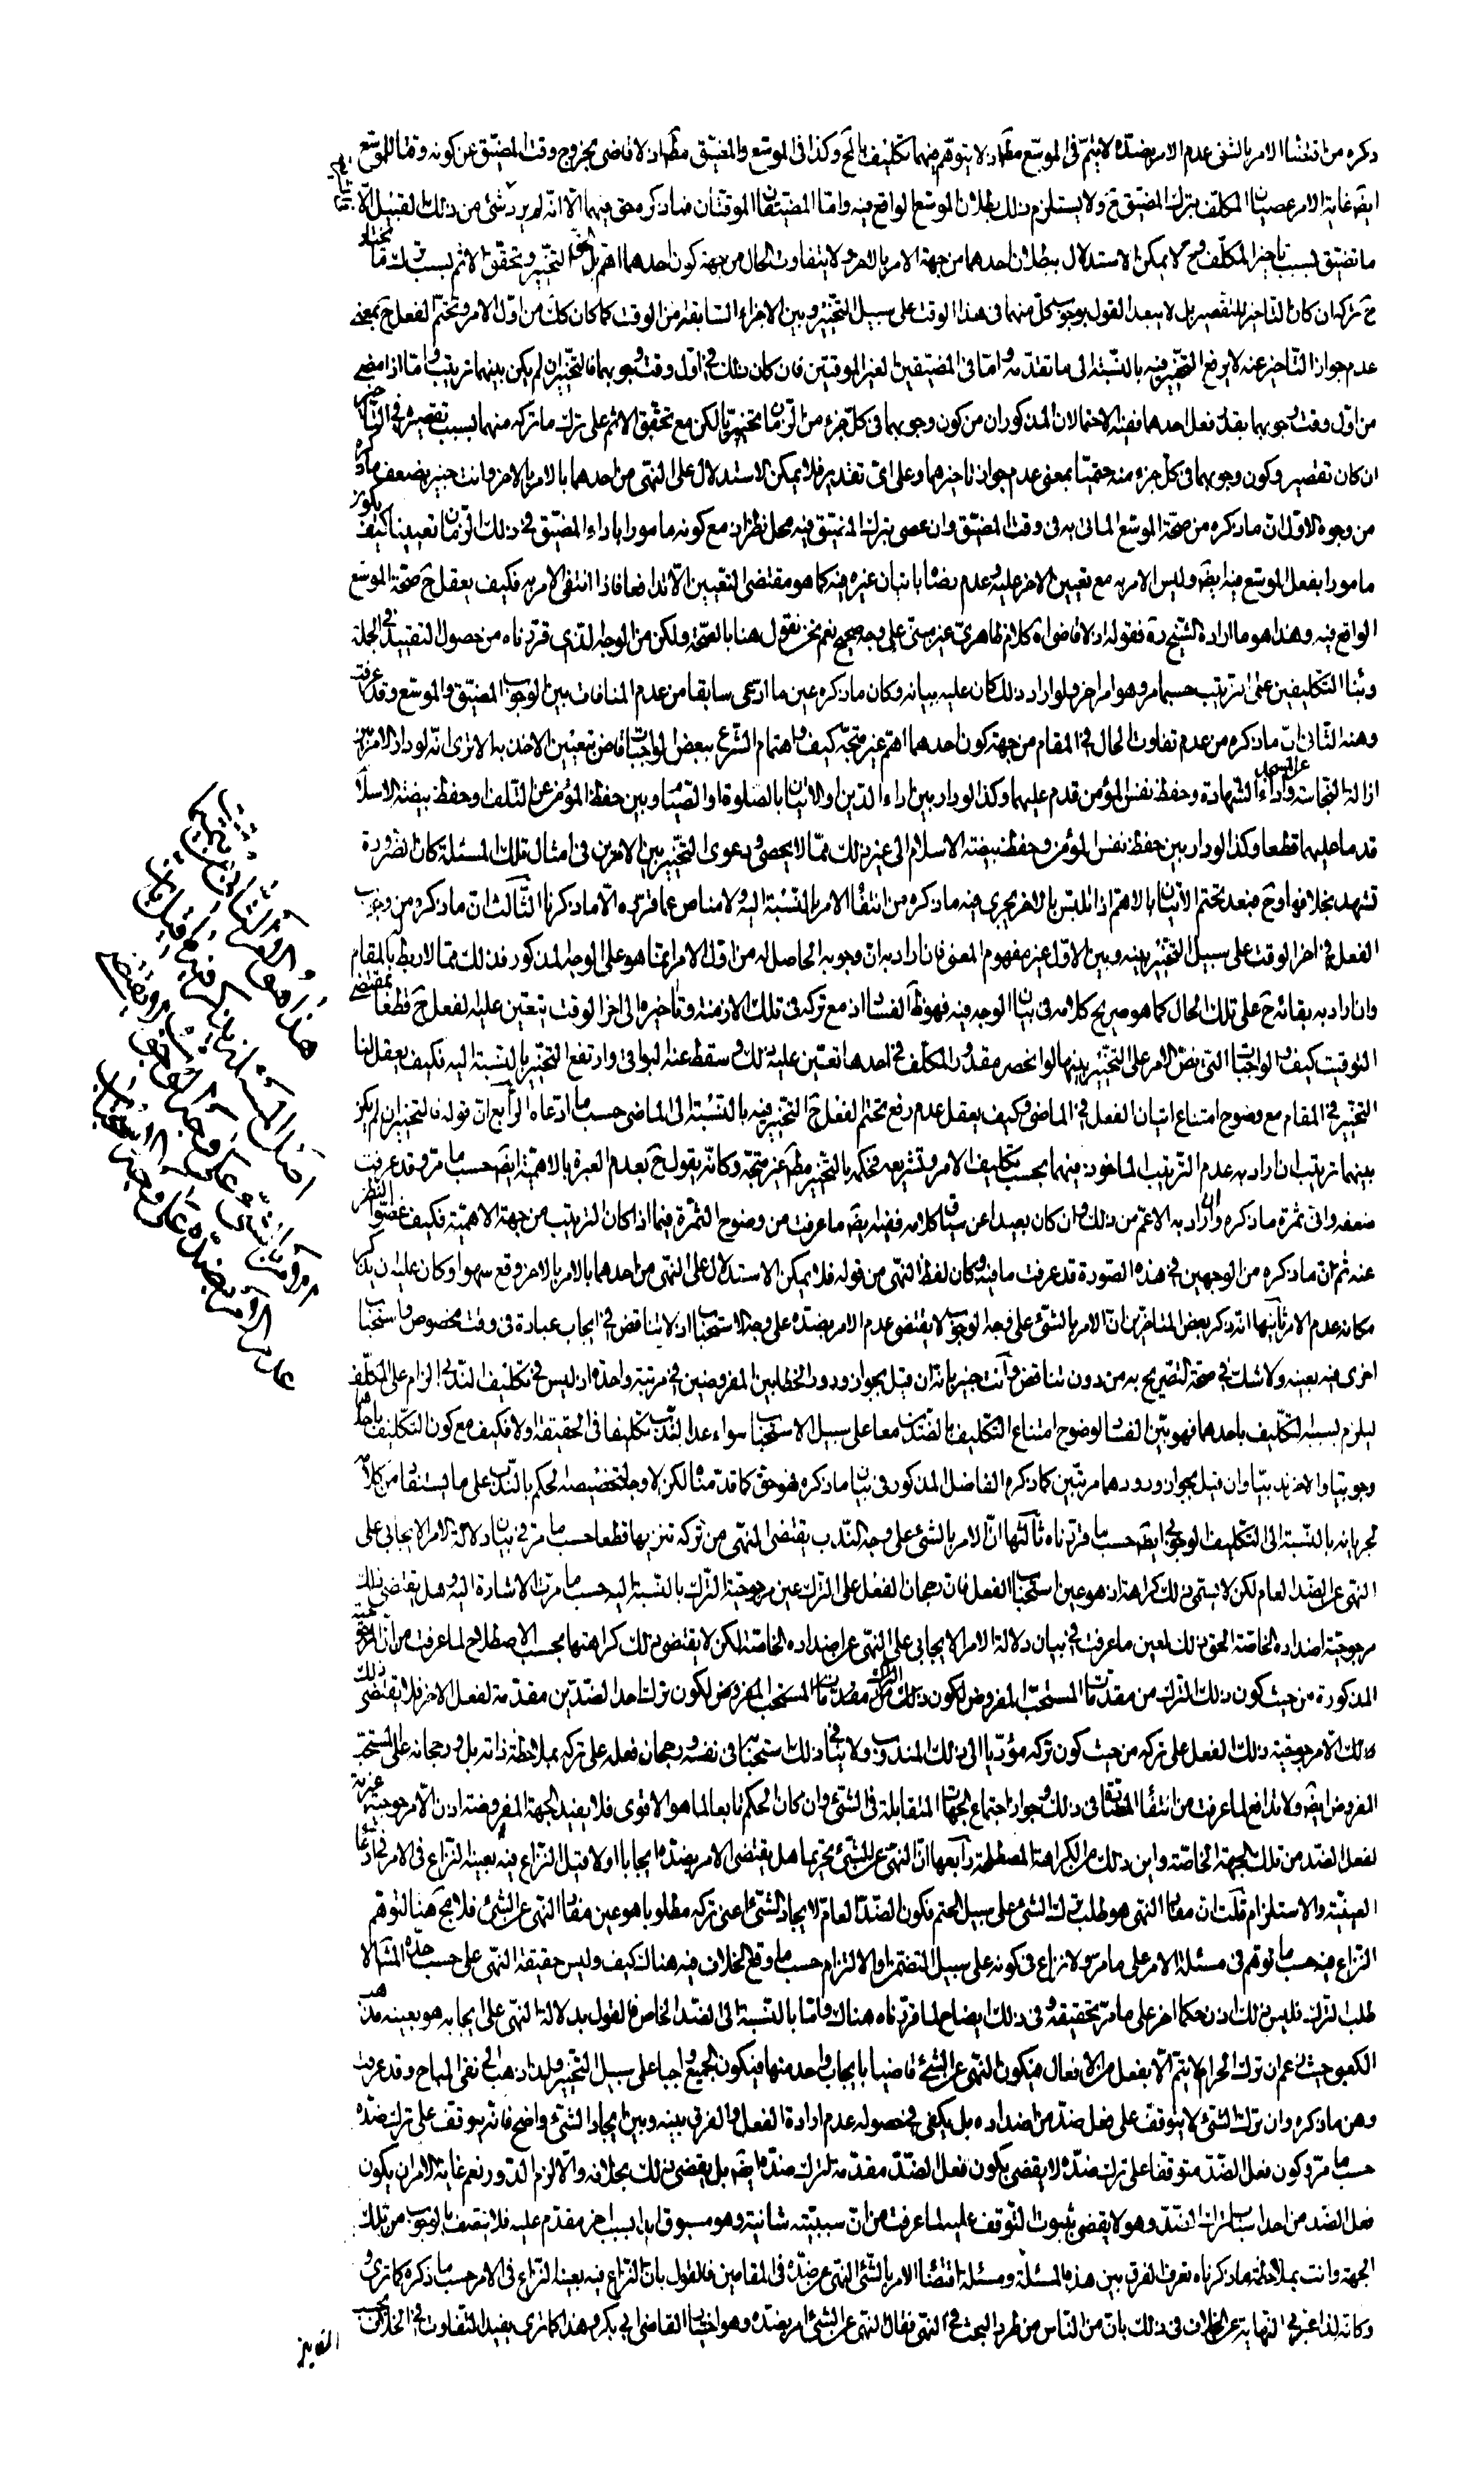 ذكره من اقتضاء الامر بالشئ عدم الامر بضده لا يتم فى الموسع مطلقا اذ لا يتوهم فيهما تكليف بالمح وكذا فى الموسع والمضيق مطلقا اذ لا قاضى بخروج وقت المضيق عن كونه وقتا للموسع
ايضا غاية الامر عصيان المكلف بترك المضيق ح ولا يستلزم ذلك بطلان الموسع الواقع فيه واما المضيقان الموقتان فما ذكره حق فيهما الا انه لم يرد شئ من ذلك القبيل الا
ما تضيق بسبب تاخير المكلف وح لا يمكن الاستدلال ببطلان احدهما من جهة الامر بالاخر ولا يتفاوت الحال من جهة كون احدهما اهم بل الحق التخيير وتحقق الاثم بسبب ترك ما يختار
ح تركه ان كان التاخير للتقصير بل لا يبعد القول بوجوب كل منهما فى هذا الوقت على سبيل التخيير وبين الاجزاء السابقة من الوقت كما كان كك من اول الامر وتحتم الفعل ح بمعنى
عدم جواز التاخير عنه لا يرفع التخيير فيه بالنسبة الى ما تقدمه واما فى المضيقين الغير الموقتين فان كان ذلك فى اول وقت وجوبهما فالتخيير ان لم يكن بينهما ترتيب واما اذا مضى
من اول وقت وجوبهما بقدر فعل احدهما ففيه الاحتمالان المذكوران من كون وجوبهما فى كل جزء من الزمان تخييريا لكن مع تحقق الاثم على ترك ما تركه منهما بسبب تقصيره فى التاخير
ان كان تقصير وكون وجوبهما فى كل جزء منه حتميا بمعنى عدم جواز تاخيرهما وعلى اى تقدير فلا يمكن الاستدلال على النهى من احدهما بالامر بالاخر وانت خبير بضعف ما ذكره
من وجوه الاول ان ما ذكره من صحة الموسع الماتى به فى وقت المضيق وان عصى بترك المضيق فيه محل نظر اذ مع كونه مامورا باداء المضيق فى ذلك الزمان تعيينا كيف يكون
مامورا بفعل الموسع فيه ايضا وليس الامر به مع تعيين الاخر عليه وعدم رضاه باتيان غيره فيه كما هو مقتضى التعيين الا تدافعا فاذا انتفى الامر به فكيف يعقل ح صحة الموسع
الواقع فيه وهذا هو ما اراده الشيخ ره فقوله اذ لا قاضى اه كلام ظاهرى غير مبنى على وجه صحيح نعم نحن نقول هنا بالصحة ولكن من الوجه الذى قررناه من حصول التقييد فى الجملة
وبناء التكليفين على الترتيب حسبما مر وهو امر اخر ولو اراد ذلك كان عليه بيانه وكان ما ذكره عين ما ادعى سابقا من عدم المنافات بين الوجوب المضيق والموسع وقد عرفت
وهنه الثانى ان ما ذكره من عدم تفاوت الحال فى المقام من جهة كون احدهما اهم غير متجه كيف واهتمام الشرع ببعض الواجبات قاض بتعيين الاخذ به الا ترى انه لو دار الامر بين
ازالة النجاسة عن المسجد واداء الشهادة وحفظ نفس المؤمن قدم عليهما وكذا لو دار بين اداء الدين او الاتيان بالصلوة او الصيام وبين حفظ المؤمن عن التلف او حفظ بيضة الاسلام
قدما عليهما قطعا وكذا لو دار بين حفظ نفس المؤمن وحفظ بيضة الاسلام الى غير ذلك مما لا يحصى ودعوى التخيير بين الامرين فى امثال تلك المسئلة كان الضرورة
تشهد بخلافها وح فبعد تحتم الاتيان بالاهم اذا تلبس بالاخر يجرى فيه ما ذكره من انتفاء الامر بالنسبة اليه ولا مناص عما قرره الا ما ذكرناه الثالث ان ما ذكره من وجوب
الفعل فى اخر الوقت على سبيل التخيير بينه وبين الاول غير مفهوم المعنى فان اراد به ان وجوبه الحاصل له من اول الامر انما هو على الوجه المذكور فذلك مما لا ربط له بالمقام
وان اراد به بقائه ح على تلك الحال كما هو صريح كلامه فى بيان الوجه فيه فهو ظاهر الفساد اذ مع تركه فى تلك الازمنة وتاخيره الى اخر الوقت يتعين عليه الفعل ح قطعا بمقتضى
التوقيت كيف والواجبات التى نص الامر على التخيير بينها لو انحصر مقدور المكلف فى احدها تعين عليه ذلك وسقط عنه البواقى وارتفع التخيير بالنسبة اليه فكيف يعقل لنا
التخيير فى المقام مع وضوح امتناع اتيان الفعل فى الماضى وكيف يعقل عدم رفع تحتم الفعل ح التخيير فيه بالنسبة الى الماضى حسب ما ادعاه الرابع ان قوله فالتخيير ان لم يكن
بينهما ترتيب ان اراد به عدم الترتيب الماخوذ فيهما بحسب تكليف الامر وتشريعه فحكمه بالتخيير مطلقا غير متجه وكانه يقول ح بعدم العبرة بالاهمية ايضا حسب ما مر وقد عرفت
ضعفه وان ثمرة ما ذكره وان اراد به الاعم من ذلك وان كان بعيدا عن سياق كلامه ففيه ايضا ما عرفت من وضوح الثمرة فيما اذا كان الترتيب من جهة الاهمية فكيف غضوا النظر
عنه ثم ان ما ذكره من الوجهين فى هذه الصورة قد عرفت ما فيه وكان لفظ النهى من قوله فلا يمكن الاستدلال على النهى من احدهما بالامر بالاخر وقع سهوا وكان عليه ان يذكر
مكانه عدم الامر ثانيها انه ذكر بعض المتاخرين ان الامر بالشئ على وجه الوجوب لا يقتضى عدم الامر بضده على وجه الاستحباب اذ لا تناقض فى ايجاب عبادة فى وقت مخصوص واستحباب
اخرى فيه بعينه ولا شك فى صحة التصريح به من دون تناقض وانت خبير بانه ان قيل بجواز ورود الخطابين المفروضين فى مرتبة واحدة اذ ليس فى تكليف الندبى الزام على المكلف
ليلزم بسببه التكليف باحدهما فهو بين الفساد لوضوح امتناع التكليف بالضدين معا على سبيل الاستحباب سواء عد الندب تكليفا فى الحقيقة او لا فكيف مع كون التكليف باحدهما
وجوبيا والاخر ندبيا وان قيل بجواز ورودهما مرتبين كما ذكره الفاضل المذكور فى بيان ما ذكره فهو حق كما قدمناه لكن لا وجه لتخصيصه الحكم بالندب على ما يستفاد من كلامه
لجريانه بالنسبة الى التكليف الوجوبى ايضا حسب ما قررناه ثالثها ان الامر بالشئ على وجه الندب يقتضى النهى من تركه تنزيها قطعا حسب ما مر فى بيان دلالة الامر الايجابى على
النهى عن الضد العام لكن لا يسمى ذلك كراهة اذ هو عين استحباب الفعل فان رجحان الفعل على الترك عين مرجوحية الترك بالنسبة اليه حسب ما مرت الاشارة اليه وهل يقتضى ذلك
مرجوحية اضداده الخاصة الحق ذلك لعين ما عرفت فى بيان دلالة الامر الايجابى على النهى عن اضداده الخاصة لكن لا يقتضى ذلك كراهتها بحسب الاصطلاح لما عرفت من ان المرجوحية
المذكورة من حيث كون ذلك الترك من مقدمات المستحب المفروض لكون ترك احد الضدين مقدمة لفعل الاخر فلا يقتضى ذلك
الا مرجوحية ذلك الفعل على تركه من حيث كون تركه مؤديا الى ذلك المندوب ولا ينافى ذلك استحبابه فى نفسه ورجحان فعله على تركه بملاحظة ذاته بل ورجحانه على المستحب
المفروض ايضا ولا تدافع لما عرفت من انتفاء المضادة فى ذلك وجواز اجتماع الجهات المتقابلة فى الشئ وان كان الحكم تابعا لما هو الاقوى فلا يفيد الجهة المفروضة اذن الا مرجوحية غيرية
لفعل الضد من تلك الجهة الخاصة واين ذلك من الكراهة المصطلحة رابعها ان النهى عن الشئ تحريما هل يقتضى الامر بضده ايجابا او لا قيل النزاع فيه بعينه النزاع فى الامر فى ادعاء
العينية والاستلزام قلت ان مفاد النهى هو طلب ترك الشئ على سبيل الحتم فكون الضد العام لايجاد الشئ اعنى تركه مطلوبا هو عين مفاد النهى عن الشئ فلا يجئ هنا لتوهم
النزاع فيه حسب ما توهم فى مسئلة الامر على ما مر ولا نزاع فى كونه على سبيل التضمن او الالتزام حسب ما وقع الخلاف فيه هناك كيف وليس حقيقة النهى على حسب حده المشهور الا
طلب الترك فليس ذلك اذن حكما اخر على ما مر تحقيقه وفى ذلك ايضاح لما قررناه هناك واما بالنسبة الى الضد الخاص فالقول بدلالة النهى على ايجابه هو بعينه مذهب
الكعبى حيث زعم ان ترك الحرام لا يتم الا بفعل من الافعال فيكون النهى عن الشئ قاضيا بايجاب واحد منها فيكون الجميع واجبا على سبيل التخيير ولذا ذهب الى نفى المباح وقد عرفت
وهن ما ذكره وان ترك الشئ لا يتوقف على فعل ضد من اضداده بل يكفى فى حصوله عدم ارادة الفعل والفرق بينه وبين ايجاد الشئ واضح فانه يتوقف على ترك ضده
حسب ما مر وكون فعل الضد متوقفا على ترك ضده لا يقضى بكون فعل الضد مقدمة لترك ضده ايضا بل يقضى ذلك بخلافه والا لزم الدور نعم غاية الامر ان يكون
فعل الضد من احد اسباب ترك الضد وهو لا يقضى بثبوت التوقف عليه لما عرفت من ان سببيته شانية وهو مسبوق ابدا بسبب اخر مقدم عليه فلا يتصف بالوجوب من تلك
الجهة وانت بملاحظة ما ذكرناه تعرف الفرق بين هذه المسئلة ومسئلة اقتضاء الامر بالشئ النهى عن ضده فى المقامين فالقول بان النزاع فيه بعينه النزاع فى الامر حسب ما ذكره كما ترى
وكانه لذا عبر فى النهاية عن الخلاف فى ذلك بان من الناس من طرد البحث فى النهى فقال النهى عن الشئ امر بضده وهو اختيار القاضى ابى بكر وهذا كما ترى يفيد التفاوت فى الخلاف بحسب
هذا هو الامر الثانى